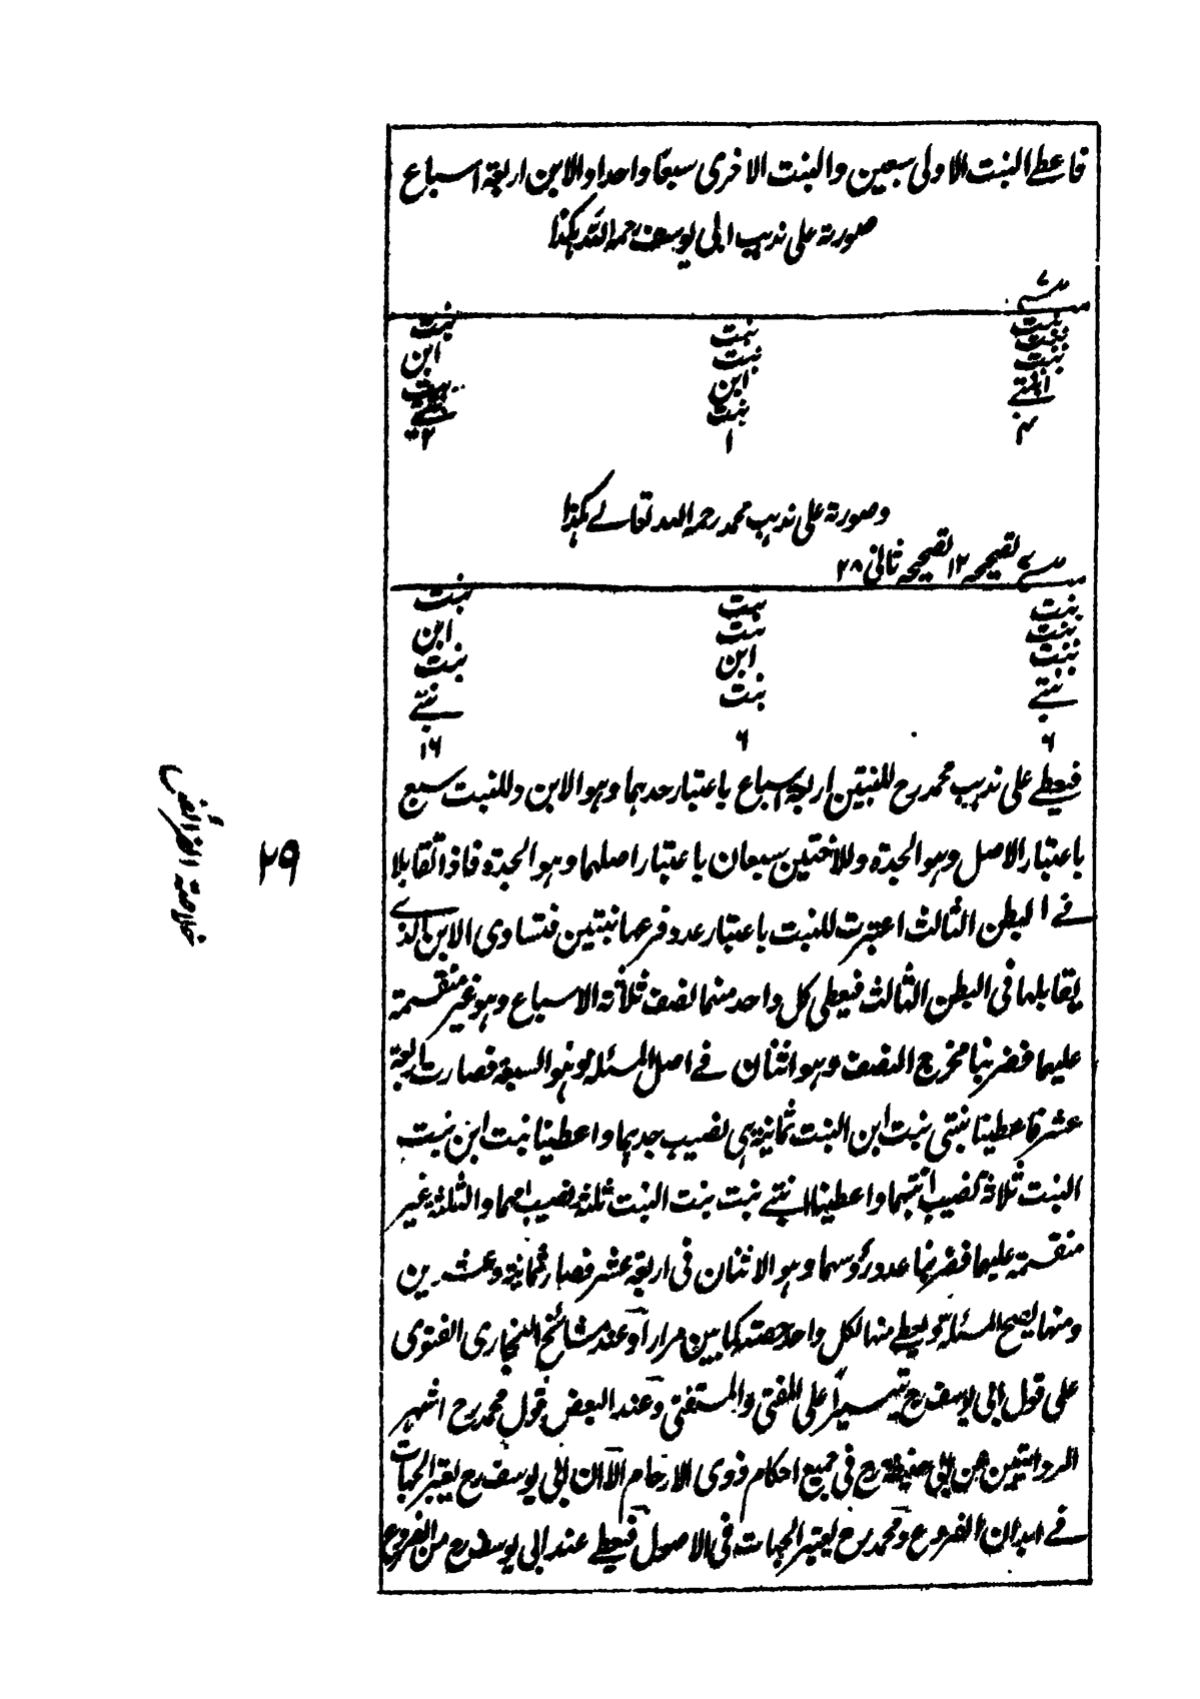 فاعطے البنت الاولی سبعین والبنت الاخری سبعًا واحدا والابن اربعة اسباع
صورتہ علی مذہب ابی یوسف رحمہ اللہ ہکذا
مسـ ٧
بنت بنت بنت
بنت بنت ابن
بنت ابن بنت
ابنتے بنت
١ ٢
وصورتہ علی مذہب محمد رحمہ اللہ تعالے ہکذا
تصحیحہ ١٢ تصحیحہ ثانی ٢٨
بنت بنت بنت
بنت بنت ابن
بنت ابن بنت
بنتے بنت بنتے
٦ ٦ ١٦
فیعطے علی مذہب محمد رح للبنتین اربعة اسباع باعتبار جدہما وہو الابن وللبنت سبع
باعتبار الاصل وہو الجدة وللاختین سبعان باعتبار اصلہما وہو الجدة فاذا تقابلا
فے البطن الثالث اعتبرت للبنت باعتبار عدد فرعہا بنتین فتساوی الابن الذے
یقابلہا فی البطن الثالث فیعطی کل واحد منہما نصف ثلاثة الاسباع وہو غیر منقسمة
علیہما فضربنا مخرج النصف وہو اثنان فے اصل المسئلة وہو السبعة فصارت اربعة
عشر فاعطینا بنتی بنت ابن البنت ثمانیة ہی نصیب جدہما واعطینا بنت ابن بنت
البنت ثلاثة نصیب ابیہا واعطینا بنتے بنت بنت البنت ثلثة نصیب امہما والثلثة غیر
منقسمة علیہما فضربنا عدد رؤسہما وہو الاثنان فی اربعة عشر فصار ثمانیة وعشرین
ومنہا یصح المسئلة ویعطے منہا لکل واحد حصتہ کما بین مرارا وعند مشائخ البخاری الفتوی
علی قول ابی یوسف رح تیسیرًا علی المفتی والمستفتی وعند البعض قول محمد رح اشہر
الروایتین عن ابی حنیفة رح فی جمیع احکام ذوی الارحام الا ان ابی یوسف رح یعتبر الجہات
فے ابدان الفروع ومحمد رح یعتبر الجہات فی الاصول فیعطے عند ابی یوسف رح من الفروع
٢٩
خلاصة الفرائض